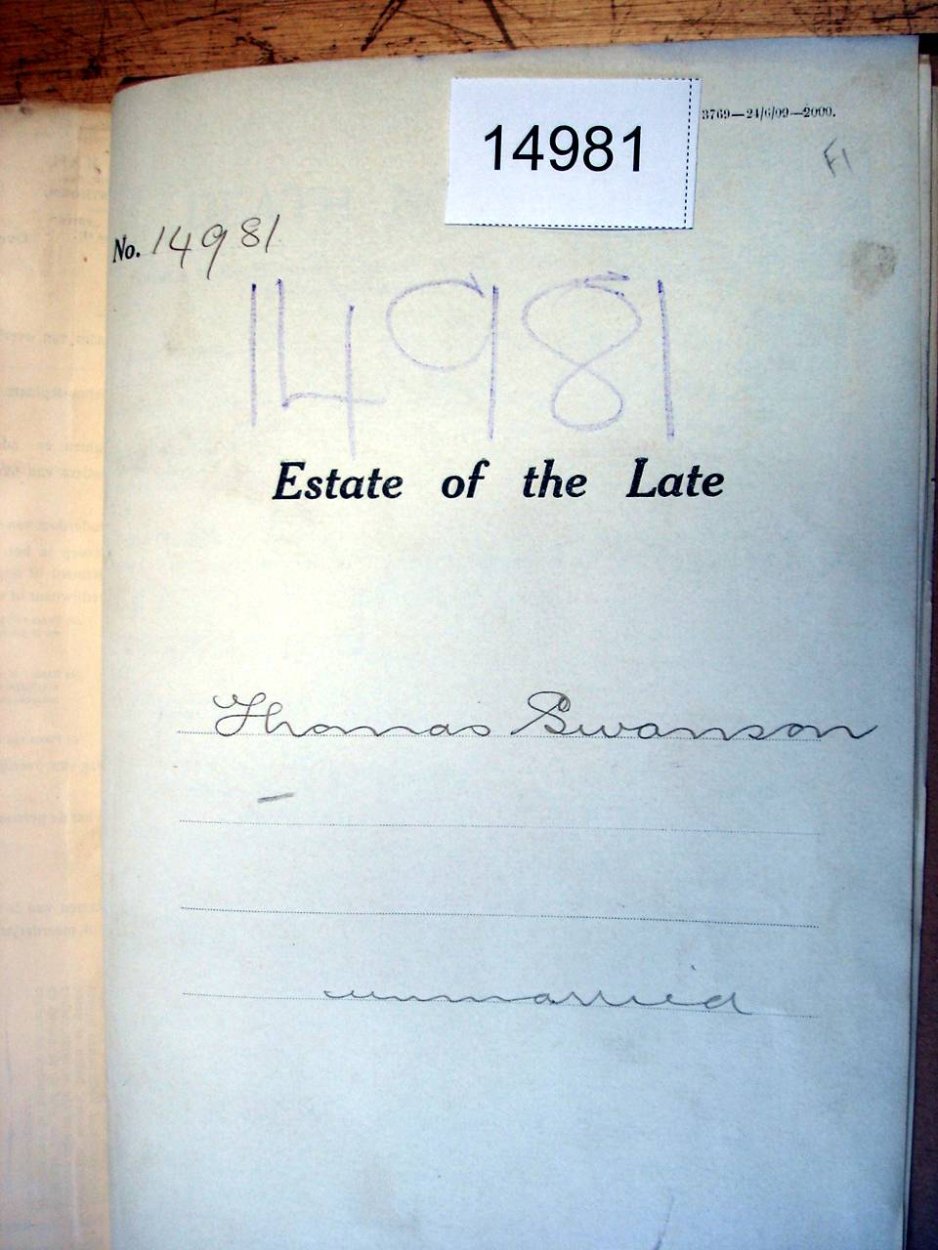 14981
3769—24/6/09—2000.
F1
No. 14981
14981
Estate of the Late
Thomas Swanson
unmarried